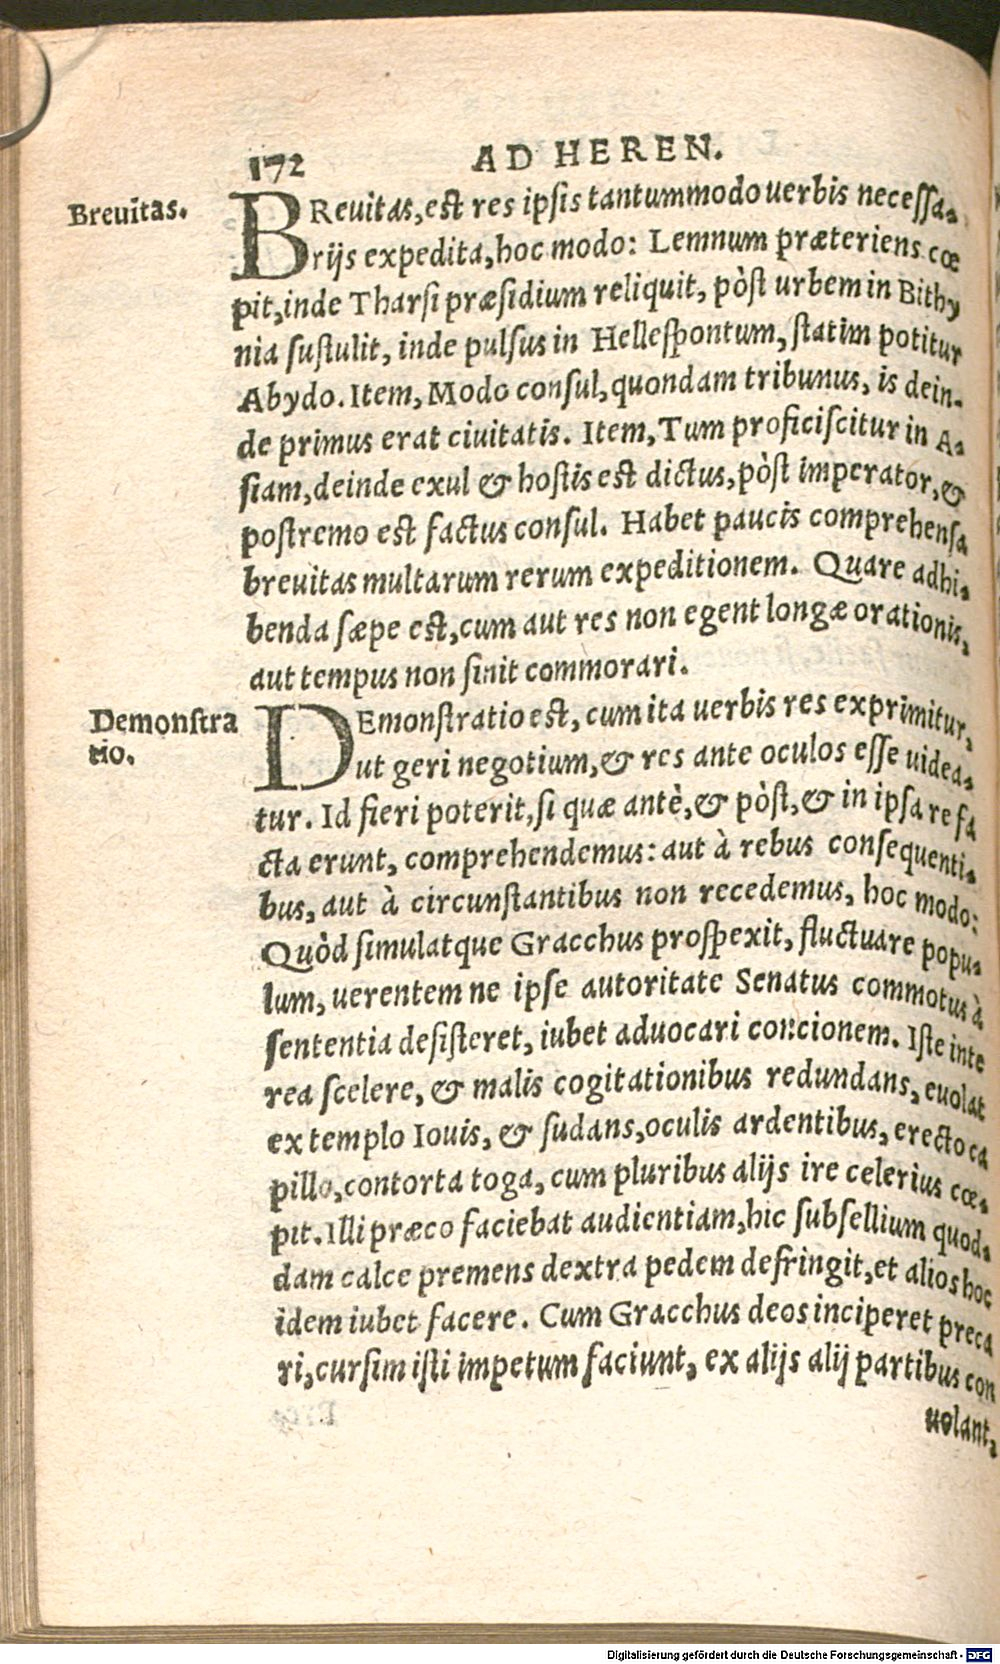 172 AD HEREN.
Breuitas.
BReuitas, est res ipsis tantummodo uerbis necessa-
rijs expedita, hoc modo: Lemnum præteriens cœ
pit, inde Tharsi præsidium reliquit, pòst urbem in Bithy
nia sustulit, inde pulsus in Hellespontum, statim potitur
Abydo. Item, Modo consul, quondam tribunus, is dein-
de primus erat ciuitatis. Item, Tum proficiscitur in A-
siam, deinde exul & hostis est dictus, pòst imperator, &
postremo est factus consul. Habet paucis comprehensa
breuitas multarum rerum expeditionem. Quare adhi-
benda sæpe est, cum aut res non egent longæ orationis,
aut tempus non sinit commorari.
Demonstra
tio.
DEmonstratio est, cum ita uerbis res exprimitur,
ut geri negotium, & res ante oculos esse uidea-
tur. Id fieri poterit, si quæ antè, & pòst, & in ipsa re fa
cta erunt, comprehendemus: aut à rebus consequenti-
bus, aut à circunstantibus non recedemus, hoc modo:
Quòd simulatque Gracchus prospexit, fluctuare popu-
lum, uerentem ne ipse autoritate Senatus commotus à
sententia desisteret, iubet aduocari concionem. Iste inte
rea scelere, & malis cogitationibus redundans, euolat
ex templo Iouis, & sudans, oculis ardentibus, erecto ca
pillo, contorta toga, cum pluribus alijs ire celerius cœ-
pit. Illi præco faciebat audientiam, hic subsellium quod-
dam calce premens dextra pedem defringit, et alios hoc
idem iubet facere. Cum Gracchus deos inciperet preca
ri, cursim isti impetum faciunt, ex alijs alij partibus con
uolant,
Digitalisierung gefördert durch die Deutsche Forschungsgemeinschaft - DFG